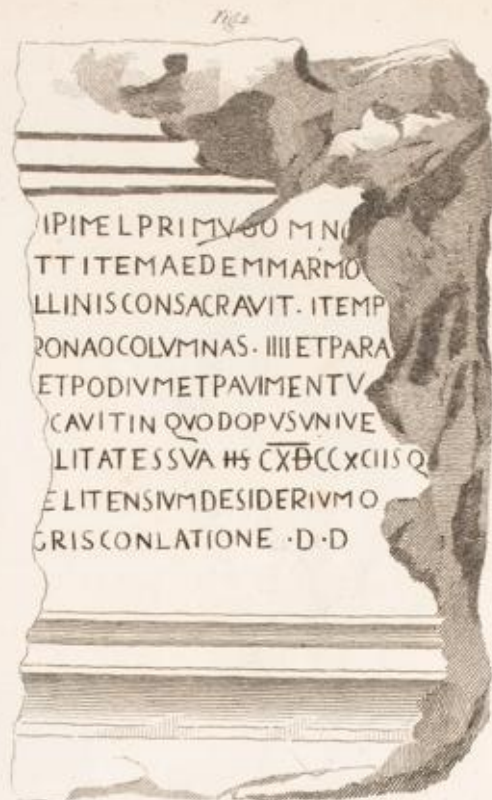 Fig. 2.
IPI MEL PRIMVS OMN
TT ITEM AEDEM MARMO
LLINIS CONSACRAVIT · ITEM P
RONAO COLVMNAS · IIII ET PARA
ET PODIVM ET PAVIMENTV
CAVIT IN QVOD OPVS VNIVE
LITATES SVA HS CXDCCXCIIS Q
ELITENSIVM DESIDERIVM O
GRIS CONLATIONE · D · D